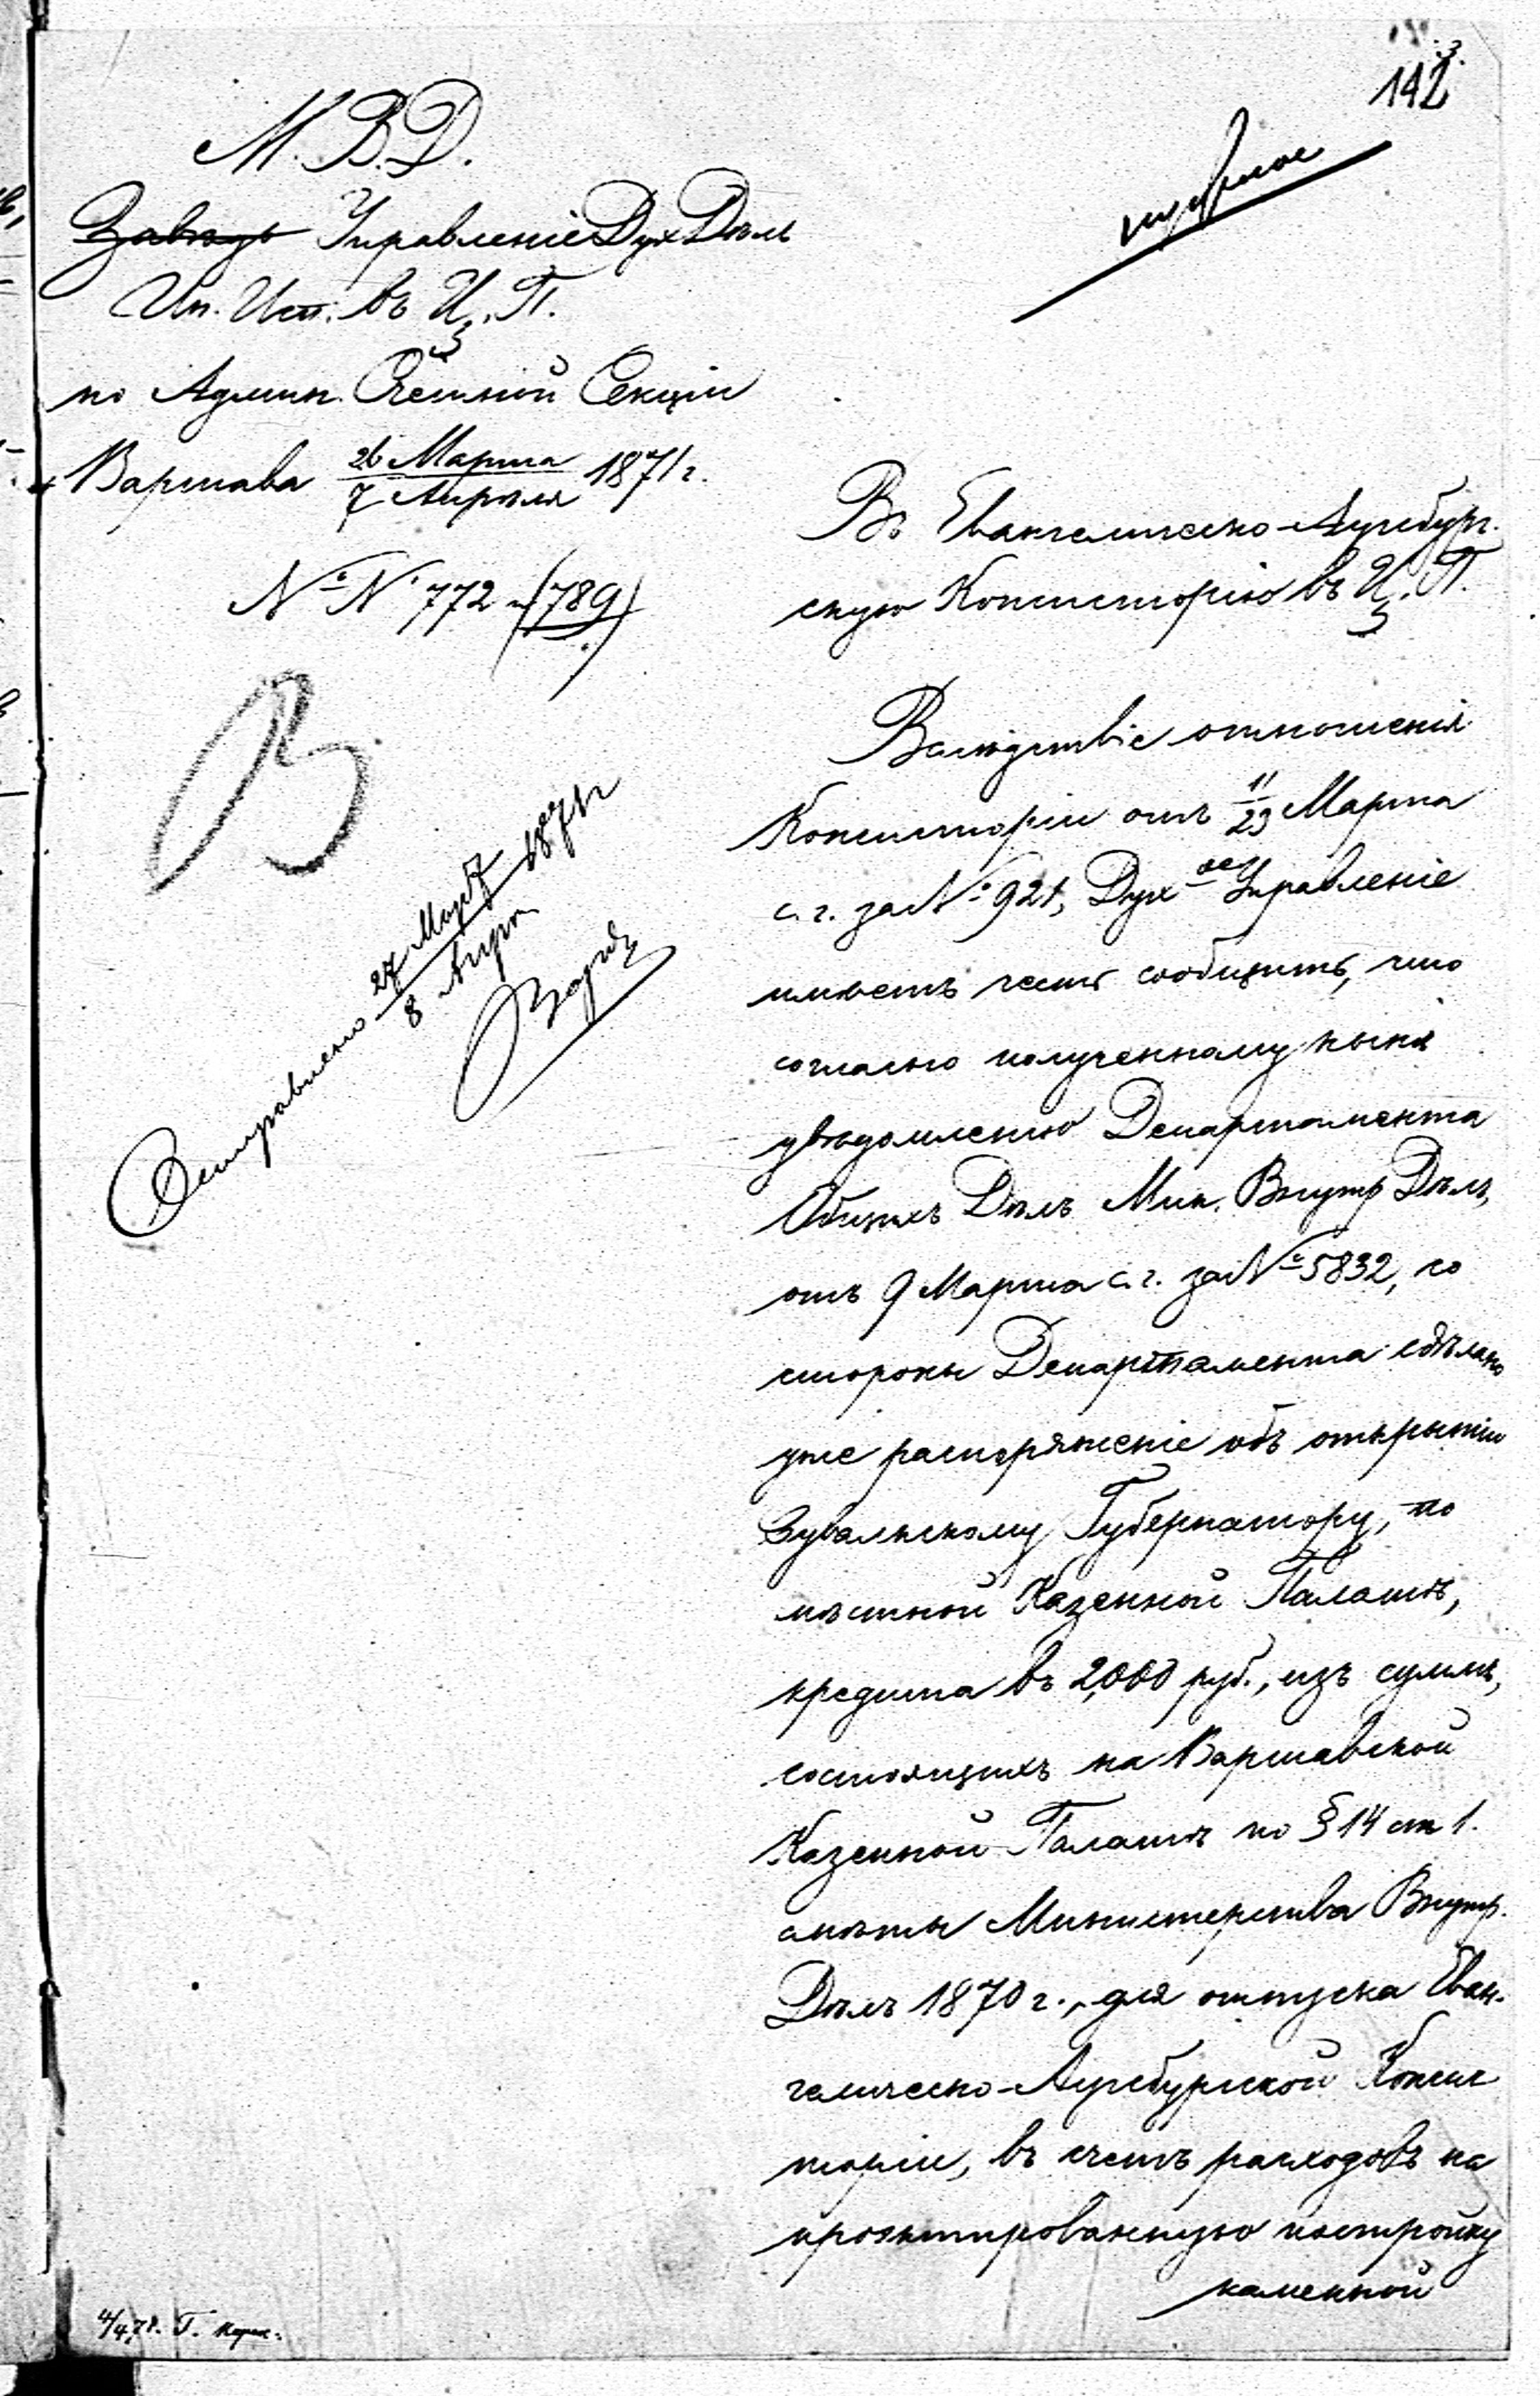 142
М.В.Д.
Завѣд Управленіе Дух Дѣлъ
Ин. Исп. въ Ц. П.
по Админ. Счетной Секціи
Варшава 26 Марта / 7 Апрѣля 1871 г.
№ № 772 и (789)
В
Отправлено 27 Мар / 8 Апрѣ 1871 г
Въ Евангелическо-Аугсбург-
скую Консисторію въ Ц. П.
Вслѣдствіе отношенія
Консисторіи отъ 11/23 Марта
с. г. за № 921, Дух ое Управленіе
имѣетъ честь сообщить, что
согласно полученному нынѣ
увѣдомленію Департамента
Общихъ Дѣлъ Мин. Внутр Дѣлъ,
отъ 9 Марта с. г. за № 5832, со
стороны Департамента сдѣлано
уже распоряженіе объ открытіи
Сувалкскому Губернатору, по
мѣстной Казенной Палатѣ,
кредита въ 2,000 руб., изъ суммъ,
состоящихъ на Варшавской
Казенной Палатѣ по § 14 ст 1.
смѣты Министерства Внутр.
Дѣлъ 1870 г., для отпуска Еван-
гелическо-Аугсбургской Консис
торіи, въ счетъ расходовъ на
проэктированную постройку
каменной